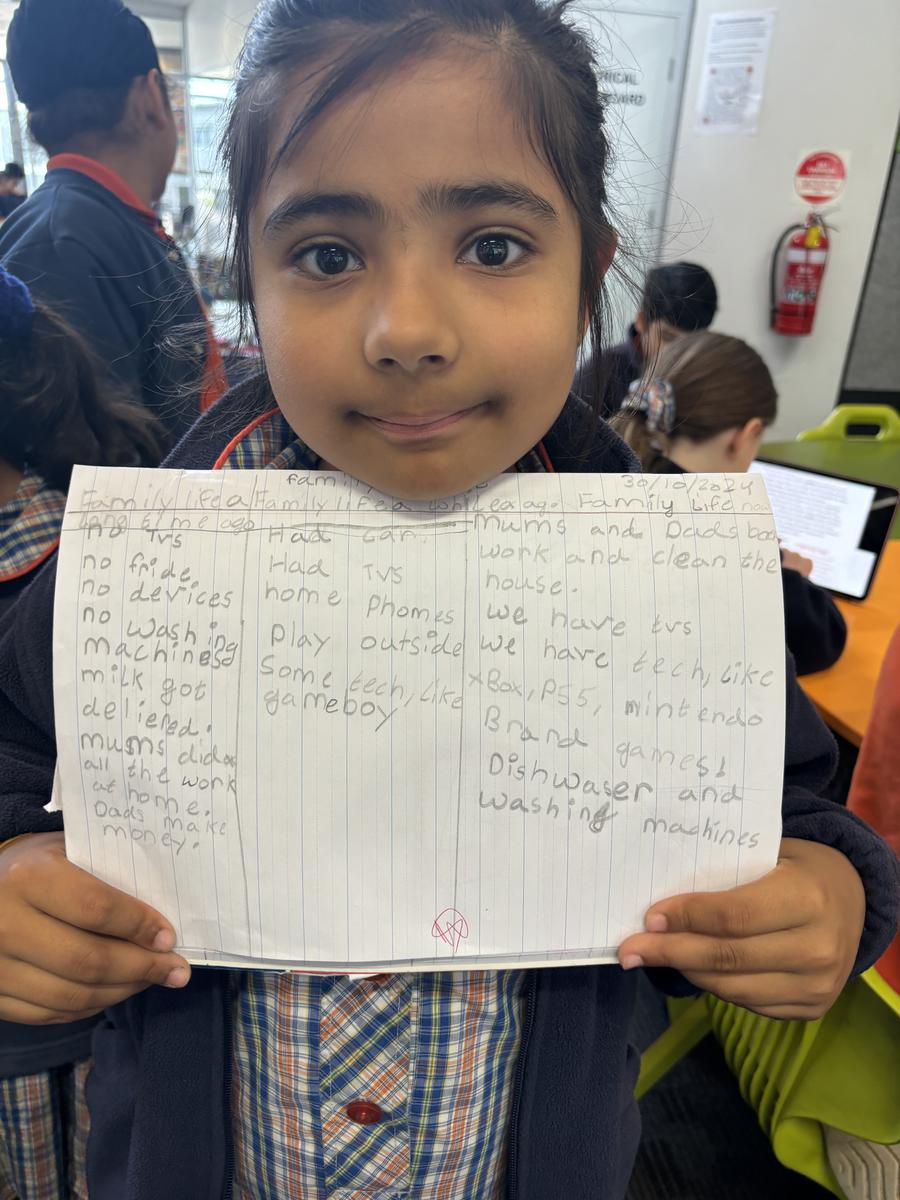 30/10/2024
Family life a
long time ago
no TVs
no fride
no devices
no washing
machines
milk got
deliered.
mums did
all the work
at home.
Dads make
money.
Family life a while ago.
Had car.
Had TVs
home Phomes
Play outside
Some tech, like
gameboy
Family Life now
Mums and Dads
work and clean the
house.
we have tvs
we have tech, like
xBox, PS5, Nintendo
Brand games!
Dishwaser and
washing machines